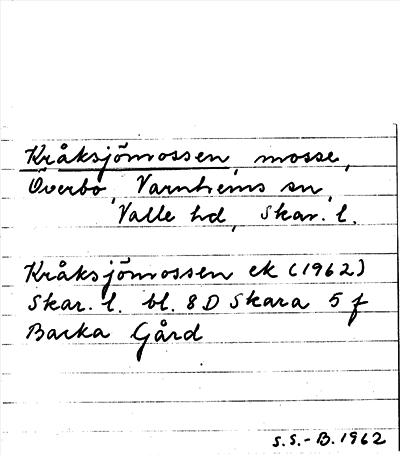 Kråksjömossen, mosse,
Överbo, Varnhems sn,
Valle hd, Skar. l.
Kråksjömossen ek (1962)
Skar. l. bl. 8 D Skara 5 f
Backa Gård
S.S.-B. 1962